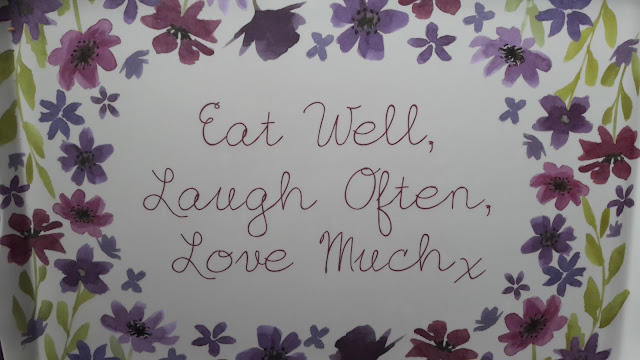 Eat Well,
Laugh Often,
Love Much x